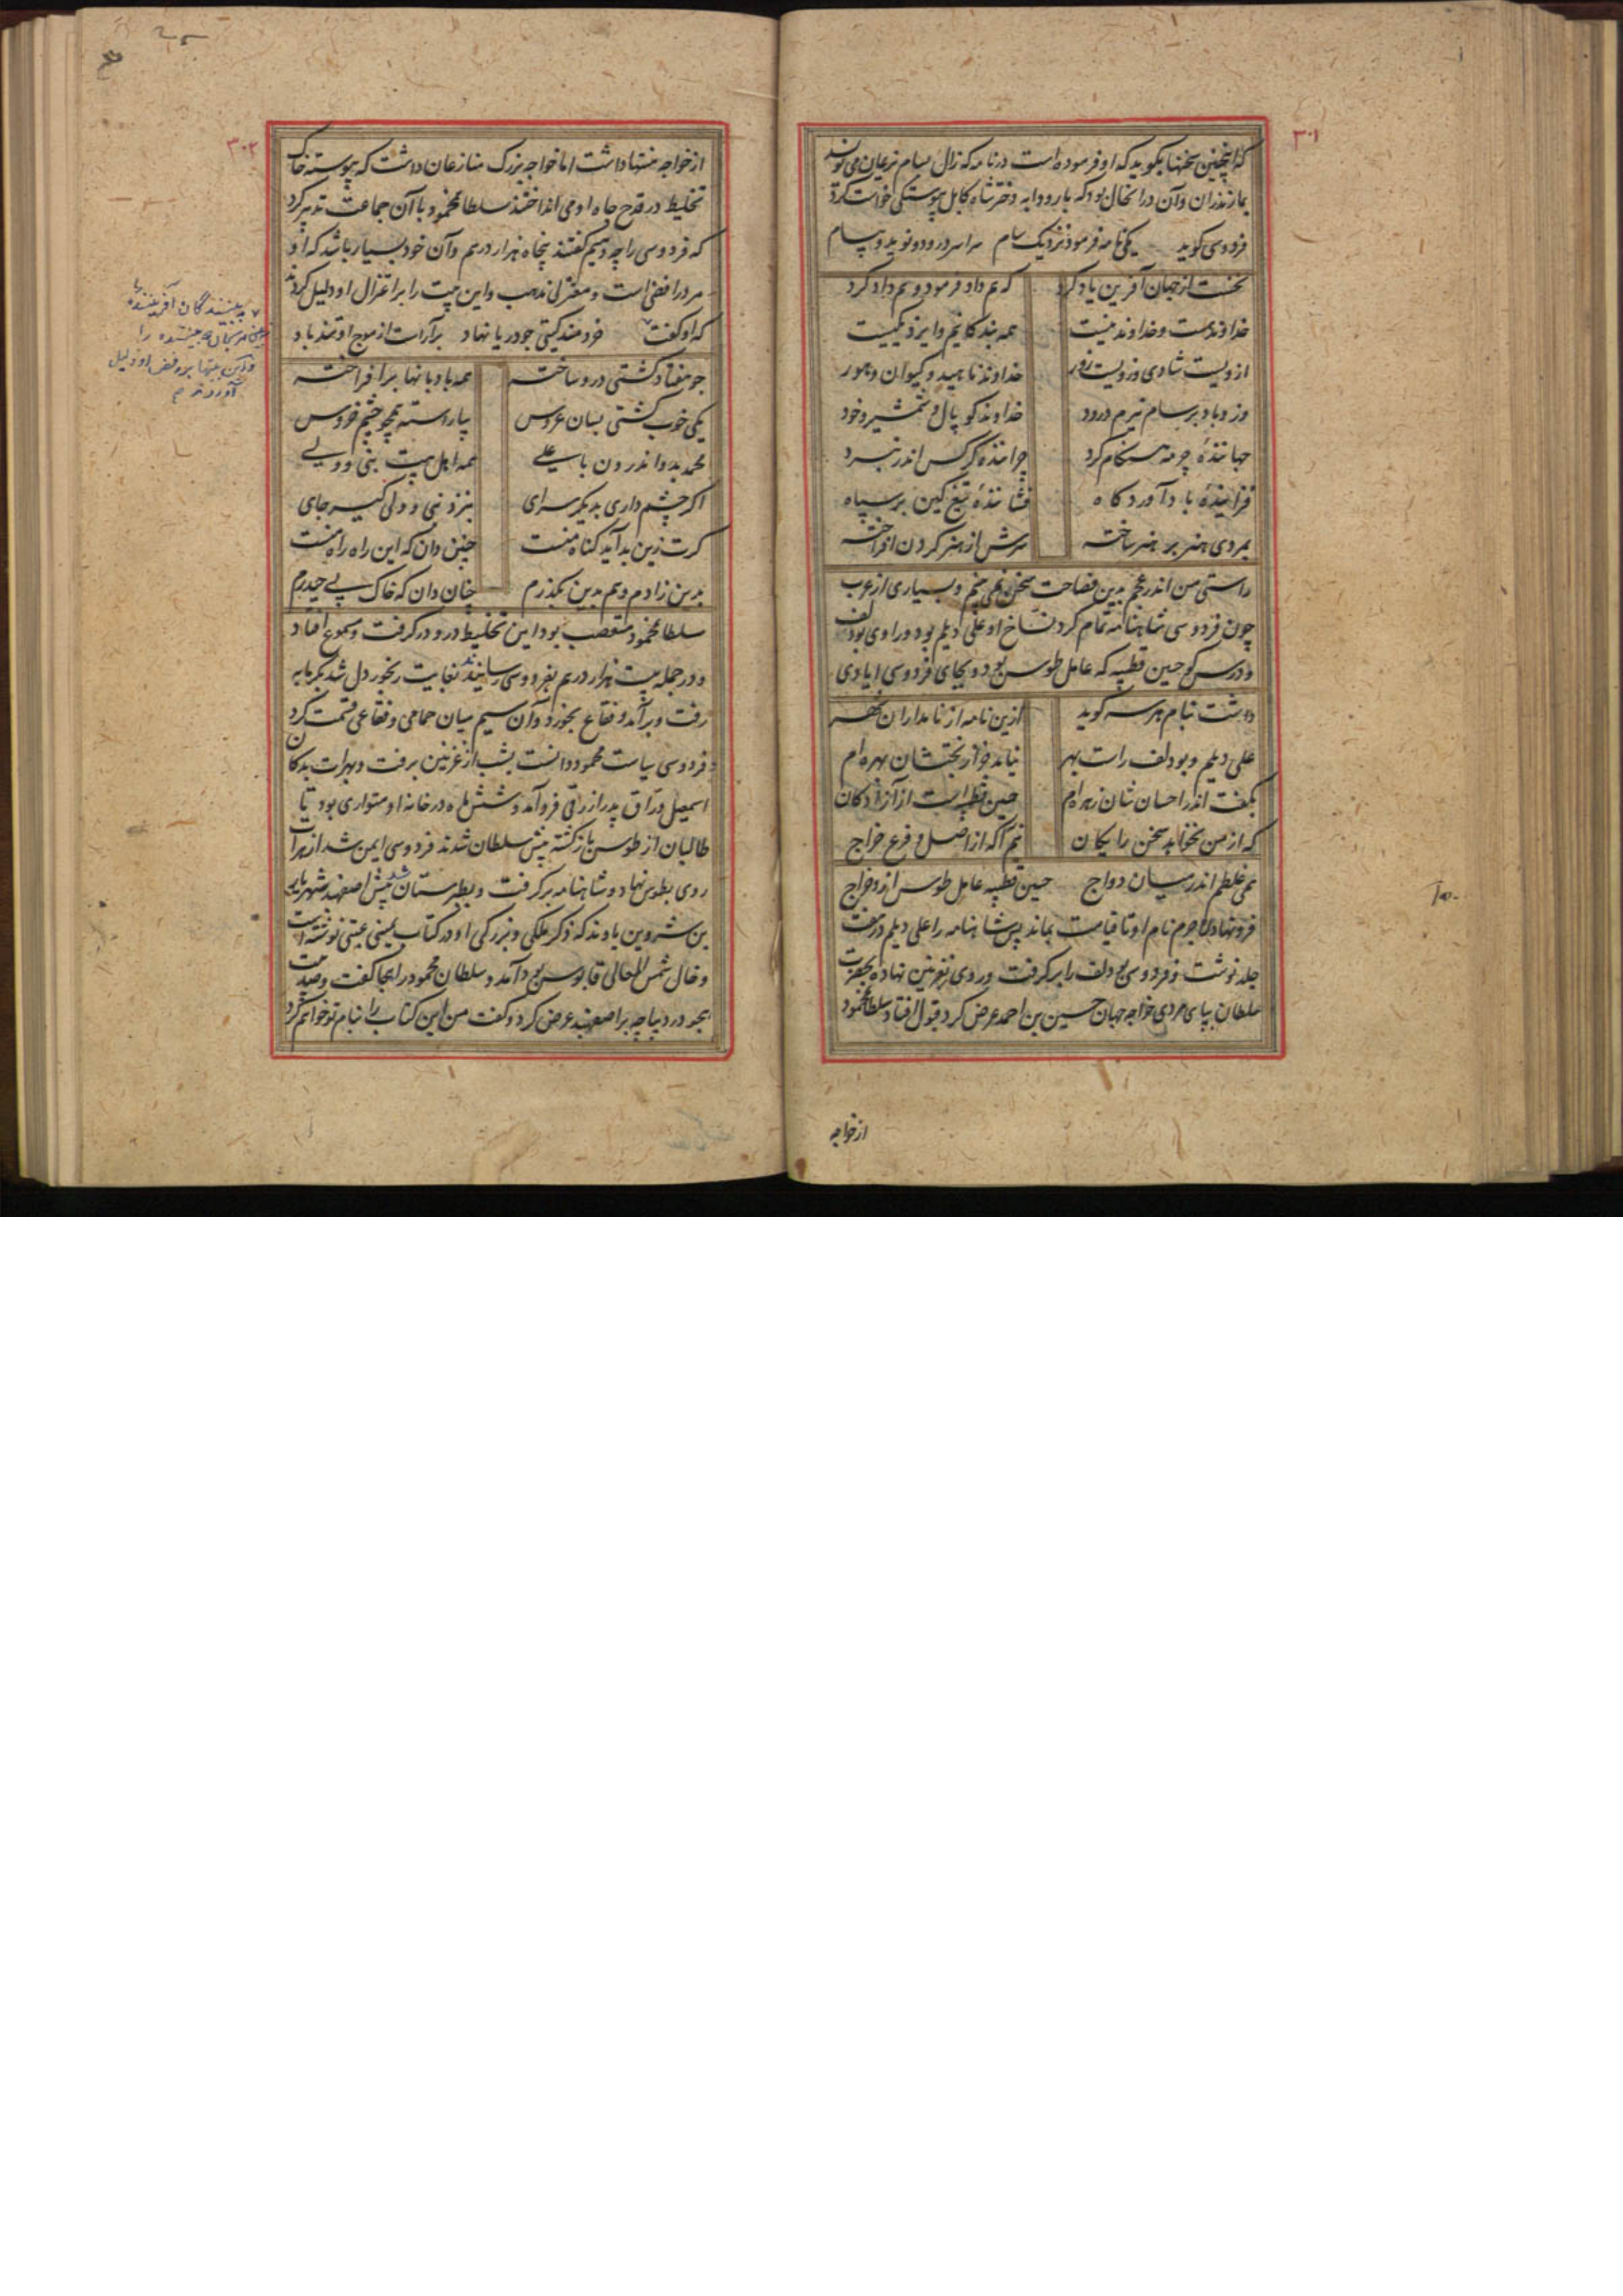 ۳۰۱
که اینچنین سخنها بگوید که او فرموده است در نامه که زال بسام نریمان می نویسد
بمازندران و آن در انحال بود که با رودابه دختر شاه کابل پیوستگی خواست کرد
فردوسی گوید یکی نامه فرمود نزدیک سام سراسر درود و نوید و پیام
نخست از جهان آفرین یاد کرد که هم داد فرمود و هم داد کرد
خداوند هست و خداوند نیست همه بندگانیم و ایزد یکیست
ازویست شادی وزویست زور خداوند ناهید و کیوان و هور
وزو باد بر سام نیرم درود خداوند کوپال و شمشیر و خود
جمانندهٔ چرمه هنگام گرد چرانندهٔ کرکس اندر نبرد
فزایندهٔ باد آوردگاه فشانندهٔ تیغ کین بر سپاه
بمردی هنر بر هنر ساخته سرش از هنر گردن افراخته
راستی من اندر عجم بدین فصاحت سخن نمی بینم و بسیاری از عرب
چون فردوسی شاهنامه تمام کرد نساخ او علی دیلم بود و راوی بودلف
و درس کو حیین قطیبه که عامل طوس بود و بجای فردوسی ایادی
داشت بنام هر سه گوید ازین نامه از نامداران شهر
علی دیلم و بودلف راست بهر نیامد جز از بختشان بهره ام
بگفت اندر احسان شان زهره ام حیین قطیبه است از آزادگان
که از من نخواهد سخن رایگان نیم آگه از اصل و فرع خراج
همی غلطم اندر میان دواج حیین قطیبه عامل طوس ازو خراج
فرو نهاد لاجرم نام او تا قیامت بماند پس شاهنامه را علی دیلم در هفت
جلد نوشت و فردوسی بودلف را برگرفت و روی بغزنین نهاد و بحضرت
سلطان بپای مردی خواجه جهان حسین بن احمد عرض کرد قبول افتاد سلطان محمود
از خواجه
۳۰۲
از خواجه منتها داشت اما خواجه بزرگ منازعان داشت که پیوسته خاک
تخلیط در قدح جاه او می انداختند سلطان محمود با آن جماعت تدبیر کرد
که فردوسی را چه دهیم گفتند پنجاه هزار درم و آن خود بسیار باشد که او
مرد رافضی است و معتزلی مذهب و این بیت را بر اعتزال او دلیل کردند
که او گفت خردمند گیتی چو دریا نهاد برآراست از موج او تند باد
چو هفتاد کشتی درو ساخته همه بادبانها برافراخته
یکی خوب کشتی بسان عروس بیاراسته همچو چشم خروس
محمد بدو اندرون با علی همه اهل بیت نبی و ولی
اگر چشم داری بدیگر سرای بنزد نبی و ولی گیر جای
گرت زین بد آید گناه منست چنین دان که این راه راه منست
بدین زادم و هم بدین بگذرم چنان دان که خاک پی حیدرم
سلطان محمود متعصب بود این تخلیط درو درگرفت و مسموع افتاد
و در جمله بیست هزار درم بفردوسی رسانیدند بغایت رنجور دل شد بگرمابه
رفت و برآمد و فقاع بخورد و آن سیم میان حمامی و فقاعی قسمت کرد
فردوسی سیاست محمود دانست بشب از غزنین برفت و بهرات بدکان
اسمعیل وراق پدر ازرقی فرو آمد و شش ماه در خانه او متواری بود تا
طالبان از طوس بازگشته پیش سلطان شدند فردوسی ایمن شد از هرات
روی بطوس نهاد و شاهنامه برگرفت و بطبرستان شد پیش اصفهبد شهریار
بن شروین باوند که ذکر ملکی و بزرگی او در کتاب یمینی عتبی نوشته است
و خال شمس المعالی قابوس بود آمد و سلطان محمود را هجا گفت و صد بیت
هجو در دیباچه بر اصفهبد عرض کرد و گفت من این کتاب را بنام تو خواهم کرد
به بینندگان آفریننده را
نبینی مرنجان دو بیننده را
و این بیتها بر رفض او دلیل
آوردند